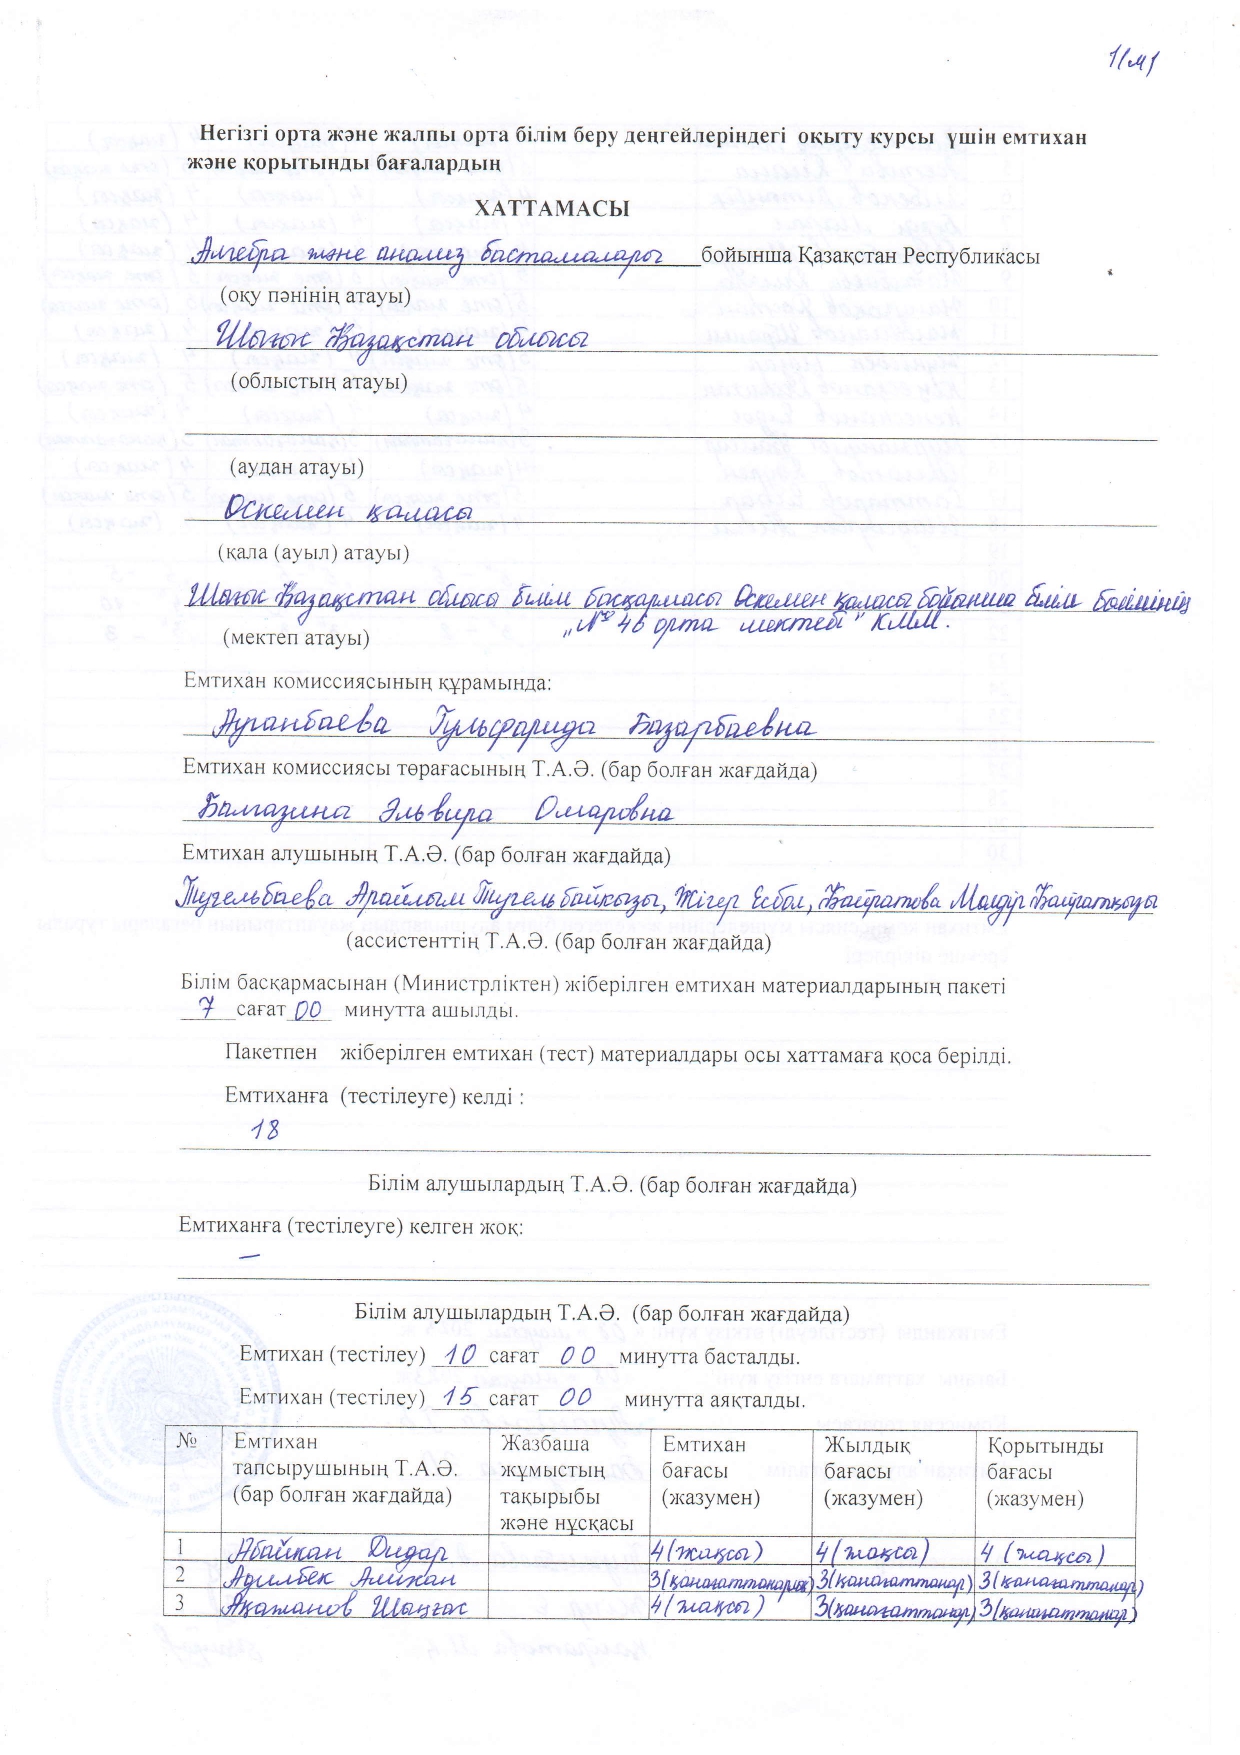 1(м)
Негізгі орта және жалпы орта білім беру деңгейлеріндегі оқыту курсы үшін емтихан
және қорытынды бағалардың
ХАТТАМАСЫ
Алгебра және анализ бастамалары бойынша Қазақстан Республикасы
(оқу пәнінің атауы)
Шығыс Қазақстан облысы
(облыстың атауы)
(аудан атауы)
Өскемен қаласы
(қала (ауыл) атауы)
Шығыс Қазақстан облысы білім басқармасы Өскемен қаласы бойынша білім бөлімінің
„№ 46 орта мектебі" КММ.
(мектеп атауы)
Емтихан комиссиясының құрамында:
Ауганбаева Гульфарида Базарбаевна
Емтихан комиссиясы төрағасының Т.А.Ә. (бар болған жағдайда)
Балгазина Эльвира Омаровна
Емтихан алушының Т.А.Ә. (бар болған жағдайда)
Тугельбаева Арайлым Тугельбайкызы, Жігер Есбол, Қайратова Мөлдір Қайратқызы
(ассистенттің Т.А.Ә. (бар болған жағдайда)
Білім басқармасынан (Министрліктен) жіберілген емтихан материалдарының пакеті
7 сағат 00 минутта ашылды.
Пакетпен жіберілген емтихан (тест) материалдары осы хаттамаға қоса берілді.
Емтиханға (тестілеуге) келді :
18
Білім алушылардың Т.А.Ә. (бар болған жағдайда)
Емтиханға (тестілеуге) келген жоқ:
–
Білім алушылардың Т.А.Ә. (бар болған жағдайда)
Емтихан (тестілеу) 10 сағат 00 минутта басталды.
Емтихан (тестілеу) 15 сағат 00 минутта аяқталды.
№ Емтихан тапсырушының Т.А.Ә. (бар болған жағдайда) Жазбаша жұмыстың тақырыбы және нұсқасы Емтихан бағасы (жазумен) Жылдық бағасы (жазумен) Қорытынды бағасы (жазумен)
1 Абайхан Дидар 4 (жақсы) 4 (жақсы) 4 (жақсы)
2 Адилбек Алихан 3 (қанағаттанарлық) 3 (қанағаттанар) 3 (қанағаттанар)
3 Ақажанов Шыңғыс 4 (жақсы) 3 (қанағаттанар) 3 (қанағаттанар)